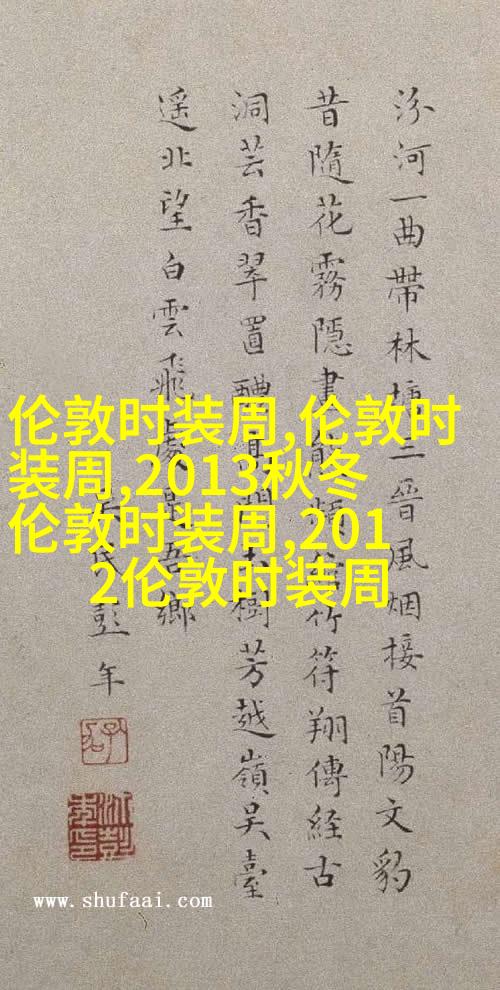 汾河一曲帶林三晉風烟接首陽文豹
昔隨花霧隱竹符翔傳經古
洞芸香翠置醴樹芳越嶺吳臺
遥北望白雲飛處是吾鄉
彭年
伦敦时装周,伦敦时
装周,2013秋冬
伦敦时装周,201
2伦敦时装周
www.shufaai.com